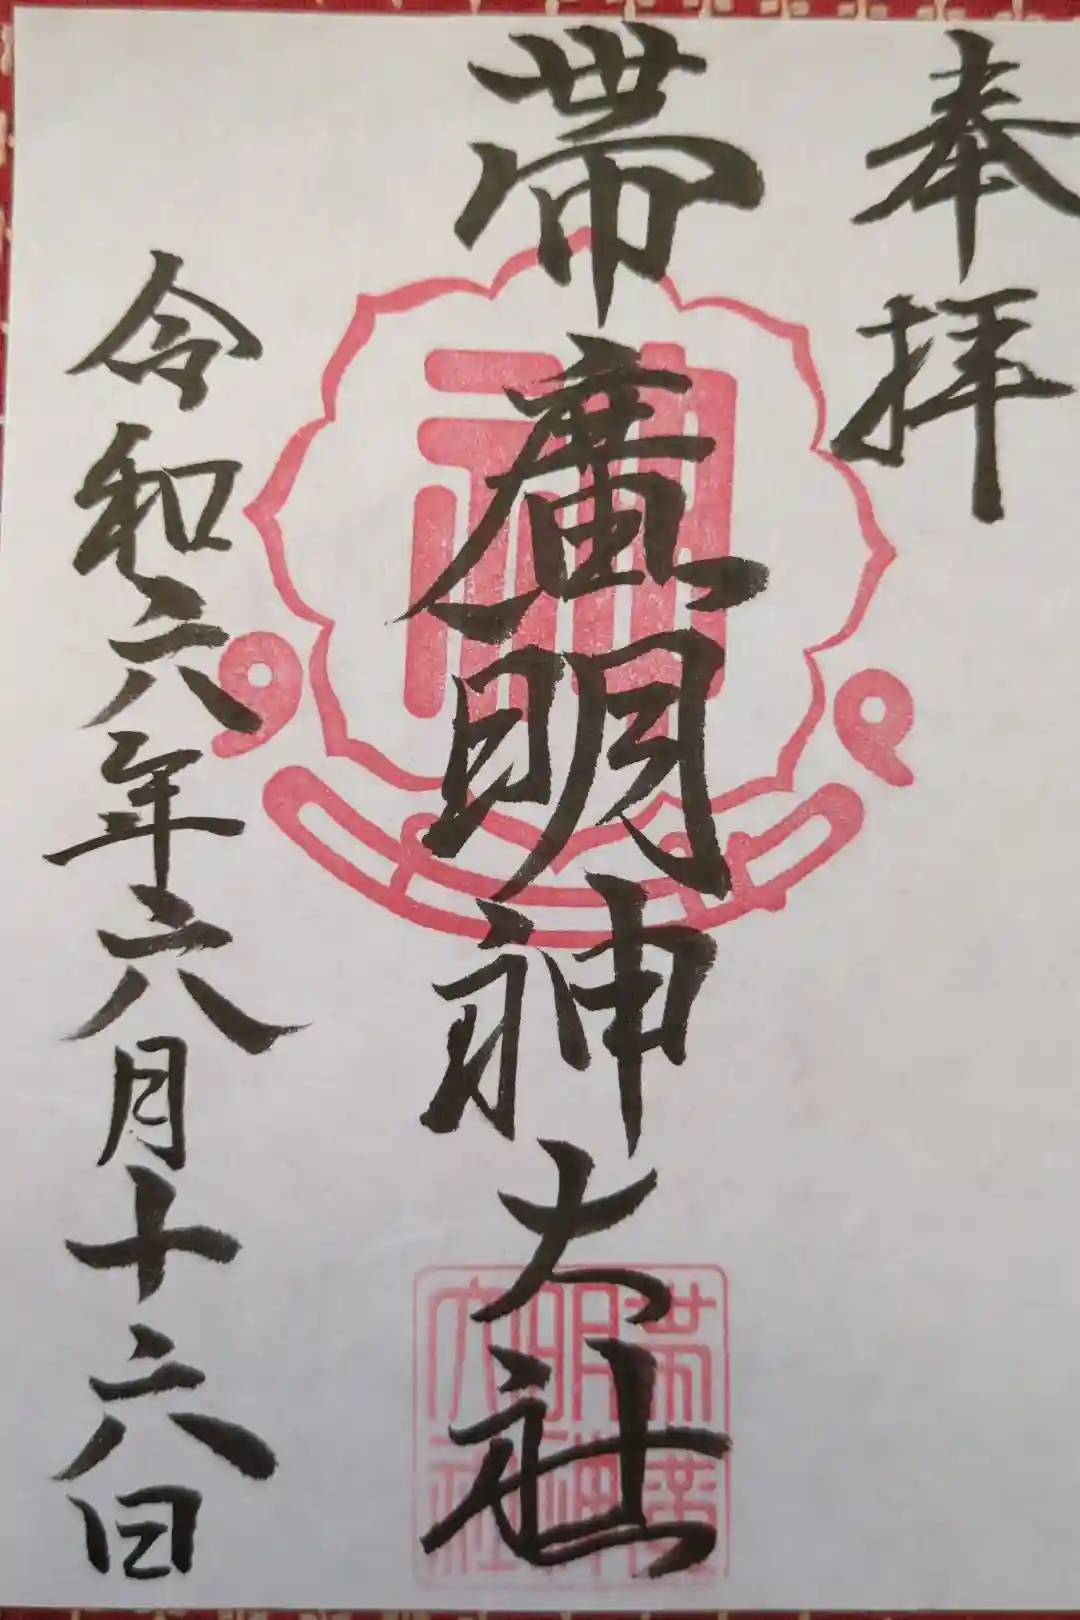 奉拝
帯廣明神大社
令和六年六月十六日
神
帯廣
明神
大社